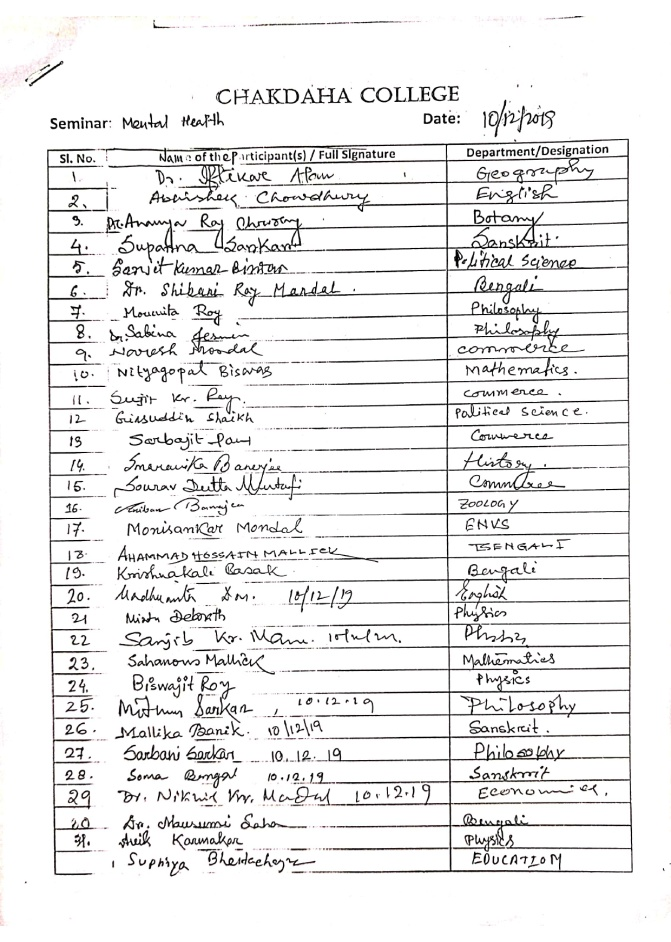 CHAKDAHA COLLEGE
Seminar: Mental Health Date: 10/12/2019
Sl. No. Name of the Participant(s) / Full Signature Department/Designation
1. Dr. Iftikar Alam Geography
2. Abhishek Chowdhury English
3. Dr. Ananya Roy Chowdhury Botany
4. Suparna Sarkar Sanskrit.
5. Sanjit Kumar Political Science
6. Dr. Shibani Roy Mandal. Bengali
7. Moumita Roy Philosophy
8. Dr. Sabina Philosophy
9. Naresh Mondal commerce
10. Nityagopal Biswas Mathematics.
11. Sujit Kr. Ray. commerce.
12 Giasuddin Shaikh Political Science.
13 Sarbajit Paul Commerce
14. Smaranika Banerjee History.
15. Sourav Dutta Mustafi Commerce
16. Anirban Banerjee ZOOLOGY
17. Monisankar Mondal ENVS
18. AHAMMAD HOSSAIN MALLICK BENGALI
19. Krishnakali Basak Bengali
20. 10/12/19 English
21 Debnath Physics
22 Sanjib Kr.
23. Sahanous Mallick Mathematics
24. Biswajit Roy Physics
25. Mithun Sarkar, 10.12.19 Philosophy
26. Mallika Banik. 10/12/19 Sanskrit.
27. Sarbani Sarkar 10.12.19 Philosophy
28. Soma 10.12.19 Sanskrit
29 Dr. Kr. 10.12.19 Economics.
30 Dr. Mausumi Saha Bengali
31. Karmakar Physics
Supriya Bhattacharya EDUCATION